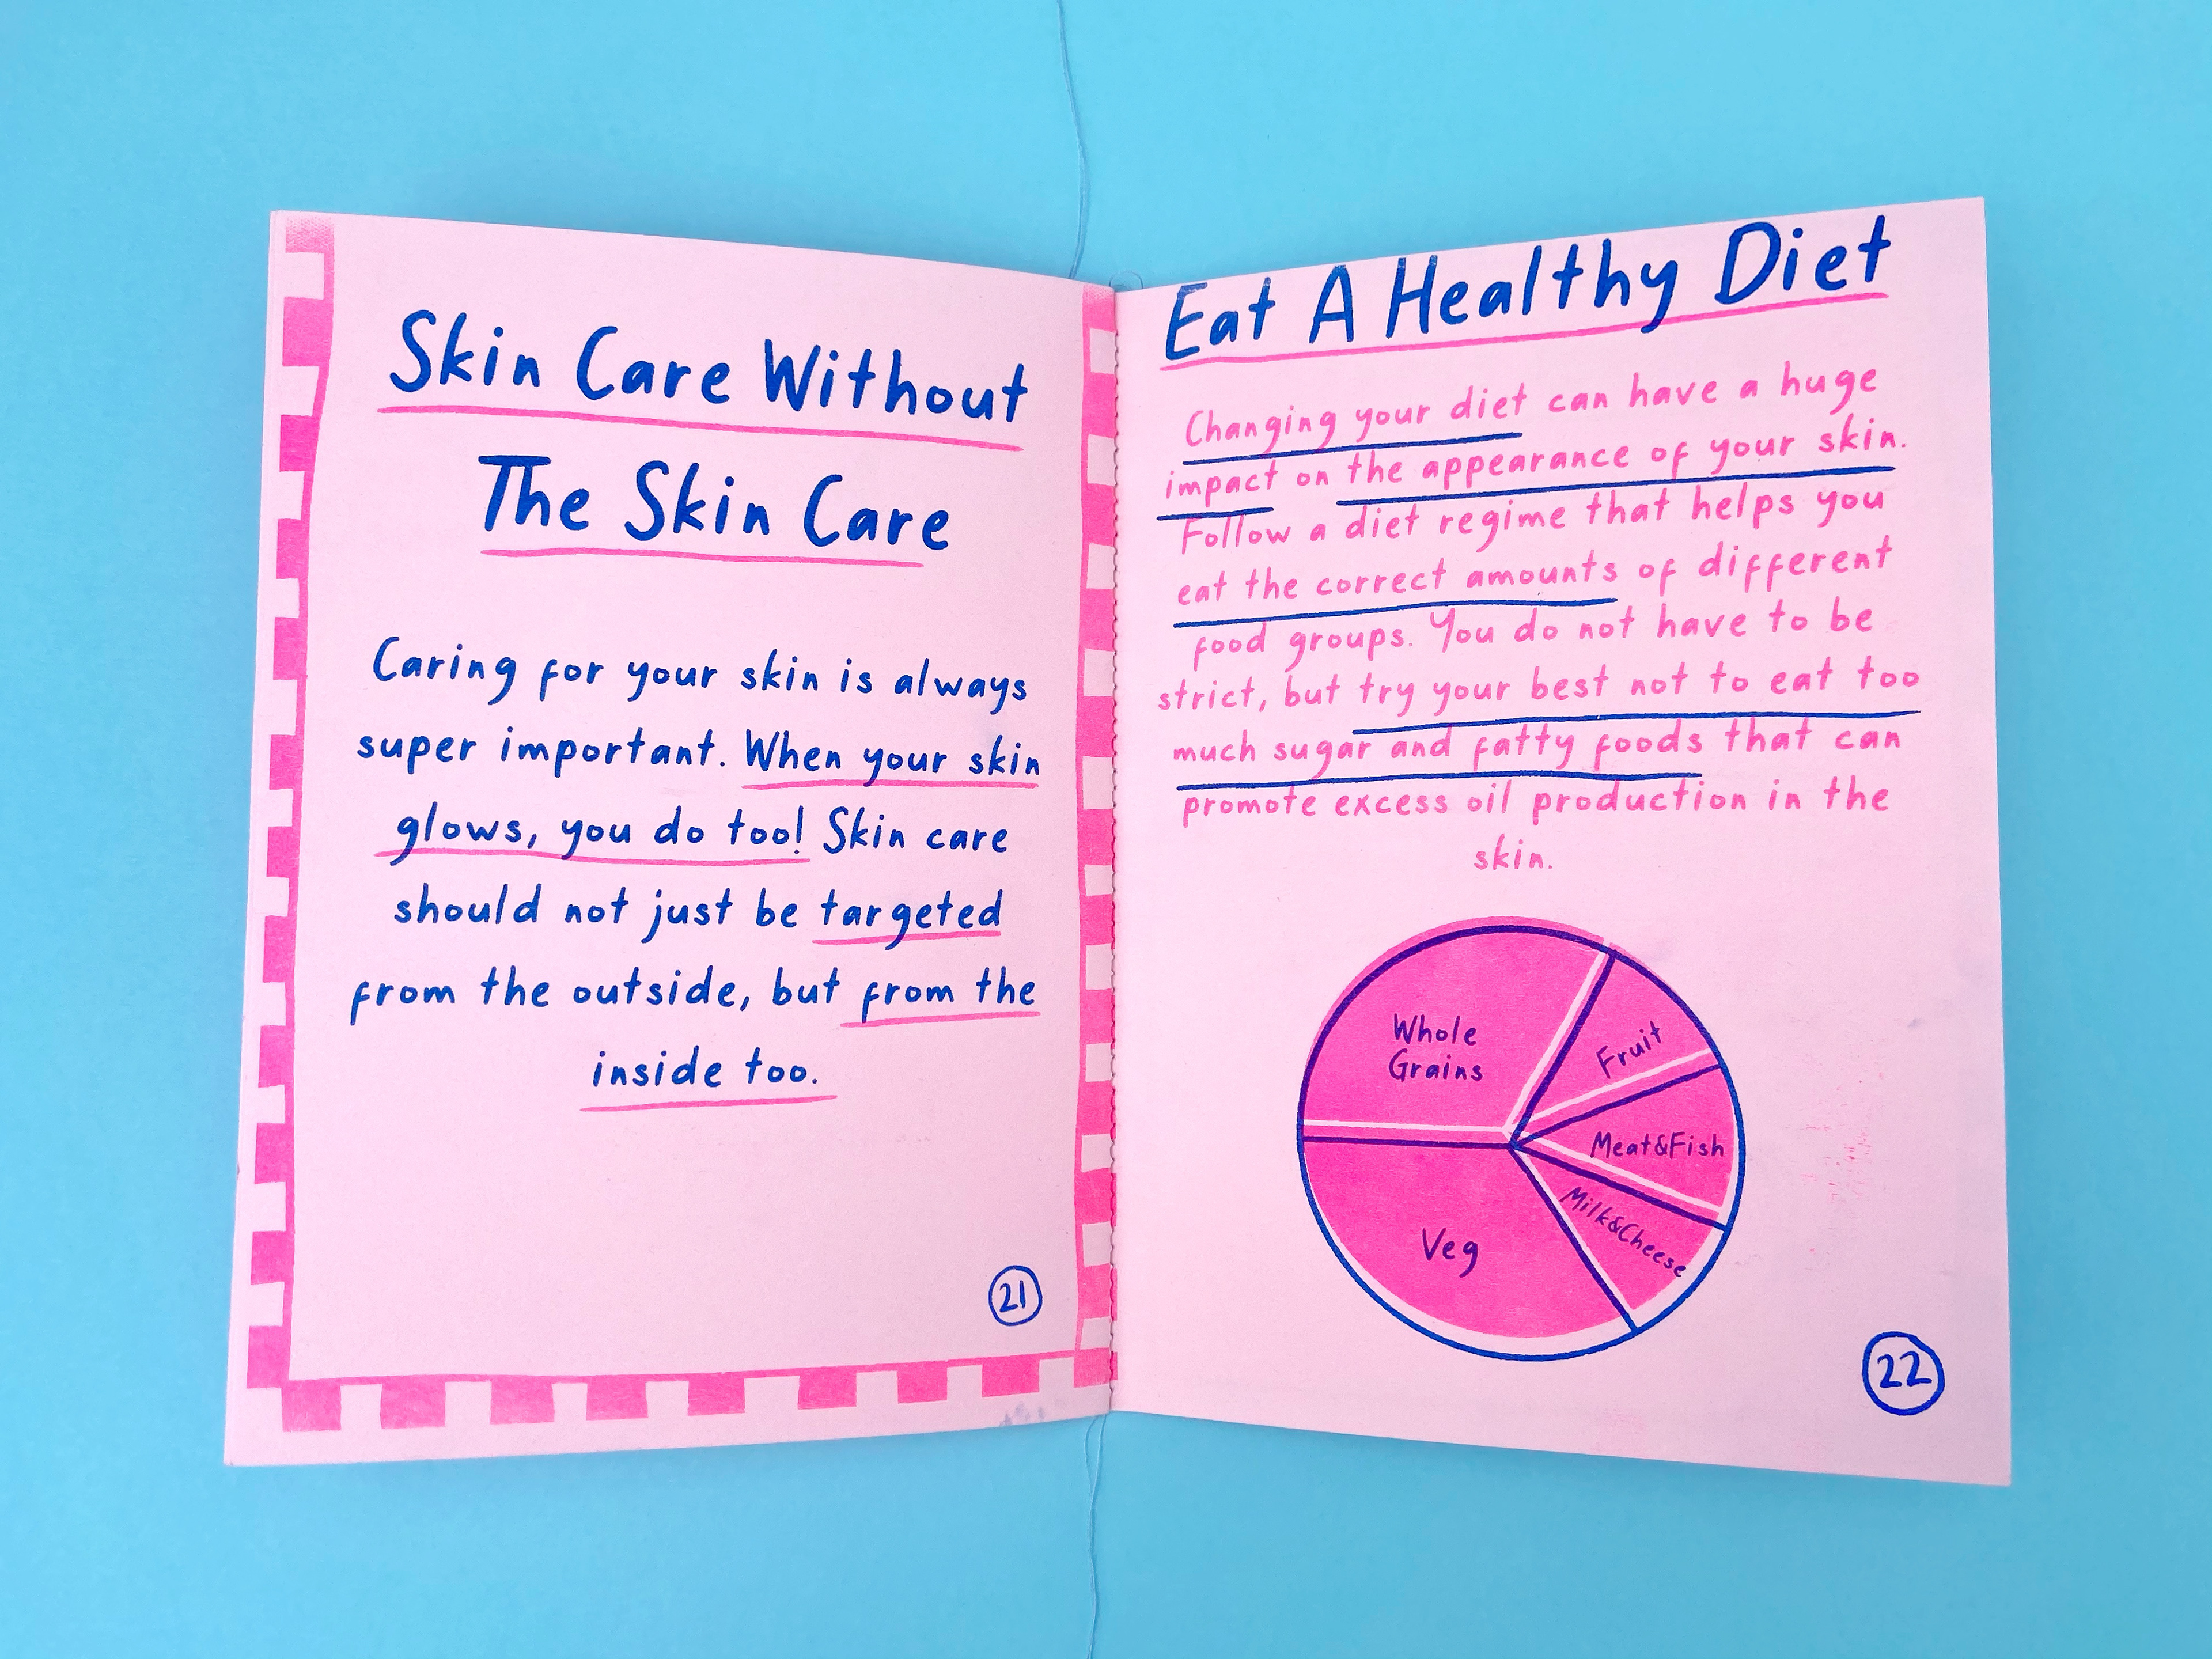 Skin Care Without
The Skin Care
Caring for your skin is always
super important. When your skin
glows, you do too! Skin care
should not just be targeted
from the outside, but from the
inside too.
21
Eat A Healthy Diet
Changing your diet can have a huge
impact on the appearance of your skin.
Follow a diet regime that helps you
eat the correct amounts of different
food groups. You do not have to be
strict, but try your best not to eat too
much sugar and fatty foods that can
promote excess oil production in the
skin.
Whole
Grains
Fruit
Meat&Fish
Milk&Cheese
Veg
22